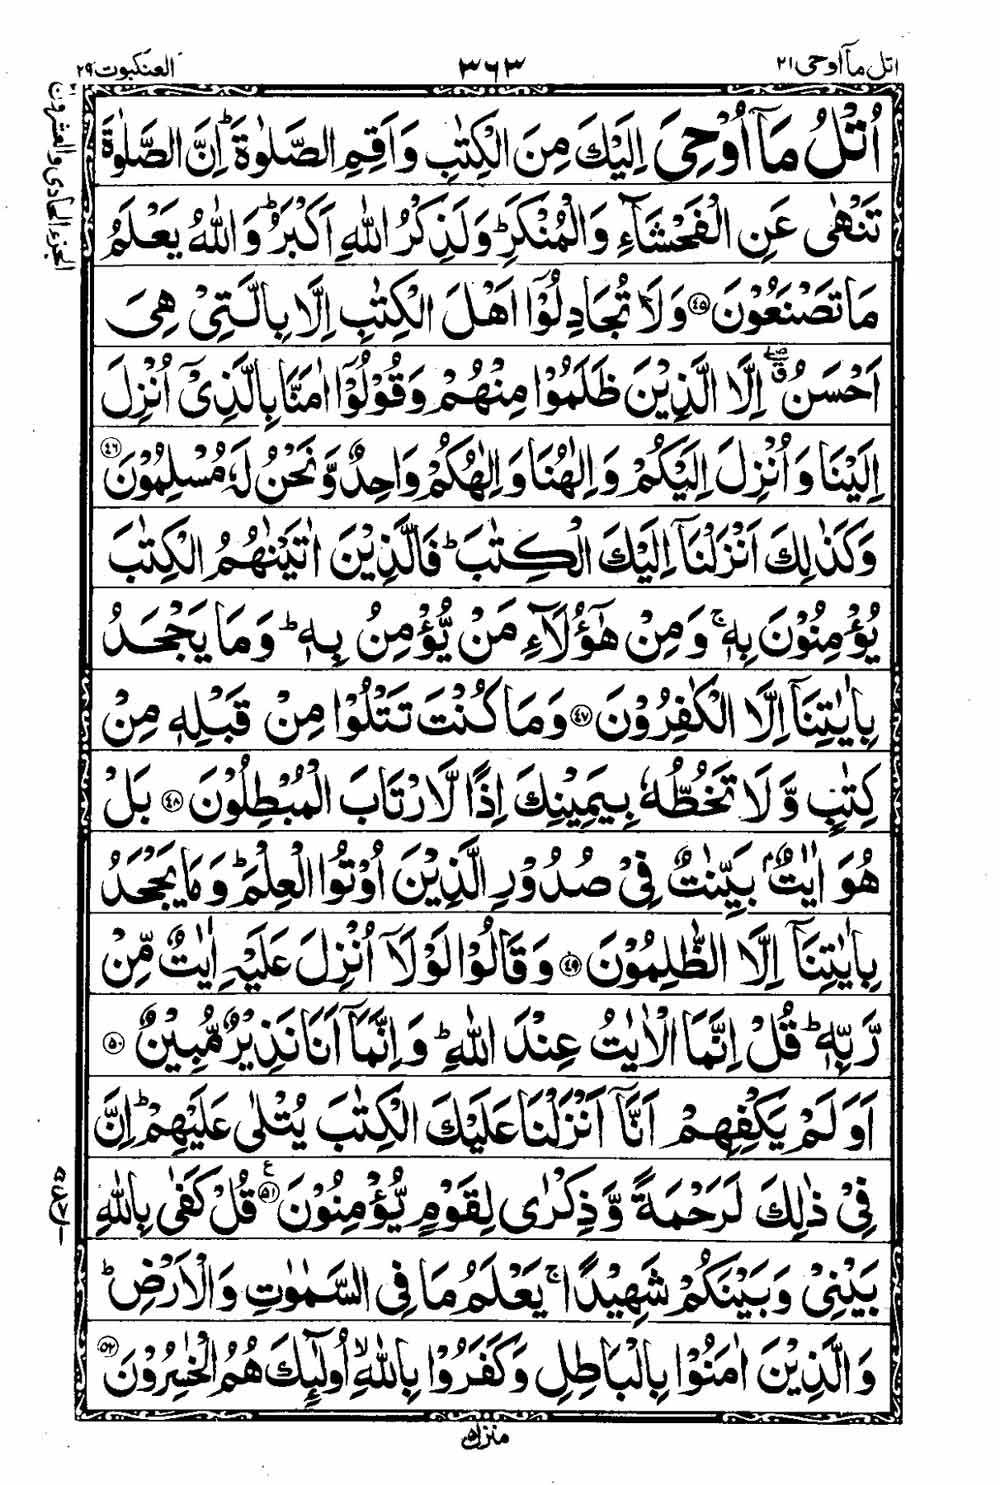 اتل مآ اوحی ۲۱
۳۶۳
العنکبوت ۲۹
الجزء الحادی والعشرون
اُتْلُ مَاۤ اُوْحِیَ اِلَیْكَ مِنَ الْكِتٰبِ وَاَقِمِ الصَّلٰوةَ ؕ اِنَّ الصَّلٰوةَ
تَنْهٰی عَنِ الْفَحْشَآءِ وَالْمُنْكَرِ ؕ وَلَذِكْرُ اللّٰهِ اَكْبَرُ ؕ وَاللّٰهُ یَعْلَمُ
مَا تَصْنَعُوْنَ ﴿۴۵﴾ وَلَا تُجَادِلُوْۤا اَهْلَ الْكِتٰبِ اِلَّا بِالَّتِیْ هِیَ
اَحْسَنُ ۖۗ اِلَّا الَّذِیْنَ ظَلَمُوْا مِنْهُمْ وَقُوْلُوْۤا اٰمَنَّا بِالَّذِیْۤ اُنْزِلَ
اِلَیْنَا وَاُنْزِلَ اِلَیْكُمْ وَاِلٰهُنَا وَاِلٰهُكُمْ وَاحِدٌ وَّنَحْنُ لَهٗ مُسْلِمُوْنَ ﴿۴۶﴾
وَكَذٰلِكَ اَنْزَلْنَاۤ اِلَیْكَ الْكِتٰبَ ؕ فَالَّذِیْنَ اٰتَیْنٰهُمُ الْكِتٰبَ
یُؤْمِنُوْنَ بِهٖ ۚ وَمِنْ هٰۤؤُلَآءِ مَنْ یُّؤْمِنُ بِهٖ ؕ وَمَا یَجْحَدُ
بِاٰیٰتِنَاۤ اِلَّا الْكٰفِرُوْنَ ﴿۴۷﴾ وَمَا كُنْتَ تَتْلُوْا مِنْ قَبْلِهٖ مِنْ
كِتٰبٍ وَّلَا تَخُطُّهٗ بِیَمِیْنِكَ اِذًا لَّارْتَابَ الْمُبْطِلُوْنَ ﴿۴۸﴾ بَلْ
هُوَ اٰیٰتٌۢ بَیِّنٰتٌ فِیْ صُدُوْرِ الَّذِیْنَ اُوْتُوا الْعِلْمَ ؕ وَمَا یَجْحَدُ
بِاٰیٰتِنَاۤ اِلَّا الظّٰلِمُوْنَ ﴿۴۹﴾ وَقَالُوْا لَوْلَاۤ اُنْزِلَ عَلَیْهِ اٰیٰتٌ مِّنْ
رَّبِّهٖ ؕ قُلْ اِنَّمَا الْاٰیٰتُ عِنْدَ اللّٰهِ ؕ وَاِنَّمَاۤ اَنَا نَذِیْرٌ مُّبِیْنٌ ﴿۵۰﴾
اَوَلَمْ یَكْفِهِمْ اَنَّاۤ اَنْزَلْنَا عَلَیْكَ الْكِتٰبَ یُتْلٰی عَلَیْهِمْ ؕ اِنَّ
فِیْ ذٰلِكَ لَرَحْمَةً وَّذِكْرٰی لِقَوْمٍ یُّؤْمِنُوْنَ ﴿۵۱﴾ ع قُلْ كَفٰی بِاللّٰهِ
بَیْنِیْ وَبَیْنَكُمْ شَهِیْدًا ۚ یَعْلَمُ مَا فِی السَّمٰوٰتِ وَالْاَرْضِ ؕ
وَالَّذِیْنَ اٰمَنُوْا بِالْبَاطِلِ وَكَفَرُوْا بِاللّٰهِ ۙ اُولٰٓئِكَ هُمُ الْخٰسِرُوْنَ ﴿۵۲﴾
منزل ۵